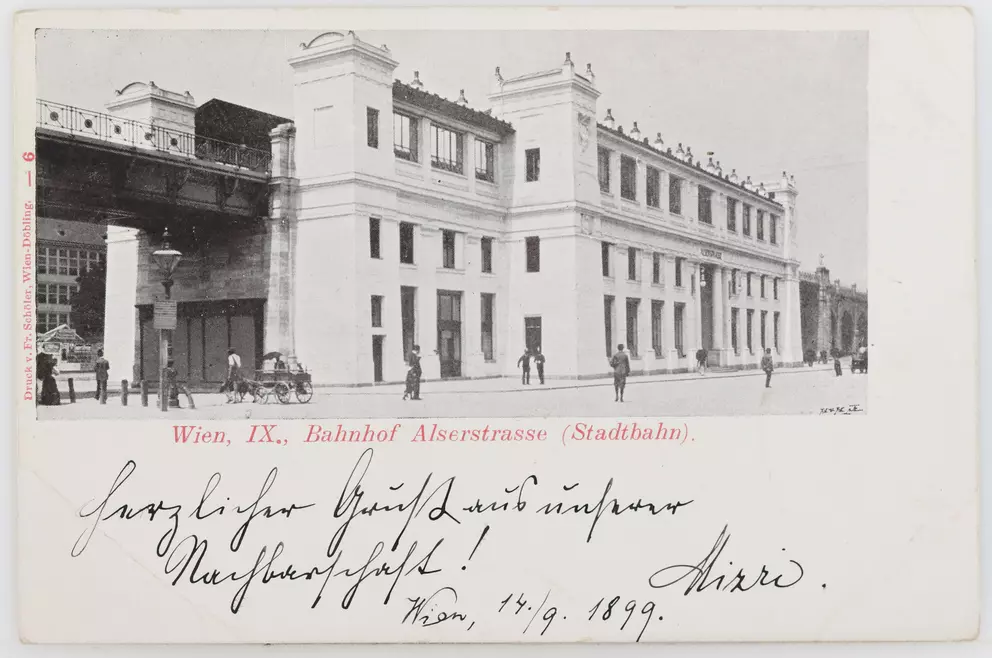 Druck v. Fr. Schöler, Wien-Döbling. — 6
ALSERSTRASSE
Wien, IX., Bahnhof Alserstrasse (Stadtbahn).
Herzlicher Gruß aus unserer
Nachbarschaft!
Mizzi.
Wien, 14./9. 1899.